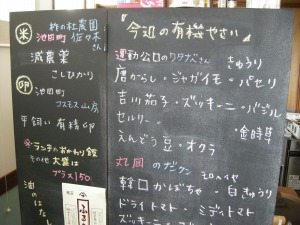 米
池田町 佐々木さん
減農薬
こしひかり
卵
池田町
コスモス山房
平飼い 有精卵
※ランチのおかわり飯
その他 大盛は
プラス150
油のはなし
『今週の有機やさい』
運動公口のワタナベさん きゅうり
唐からし・ジャガイモ・パセリ
吉川茄子・ズッキーニ・バジル
セルリー
・金時草
えんどう豆・オクラ
丸岡
韓口かぼちゃ・白きゅうり
ドライトマト・ミディトマト
ズッキーニ